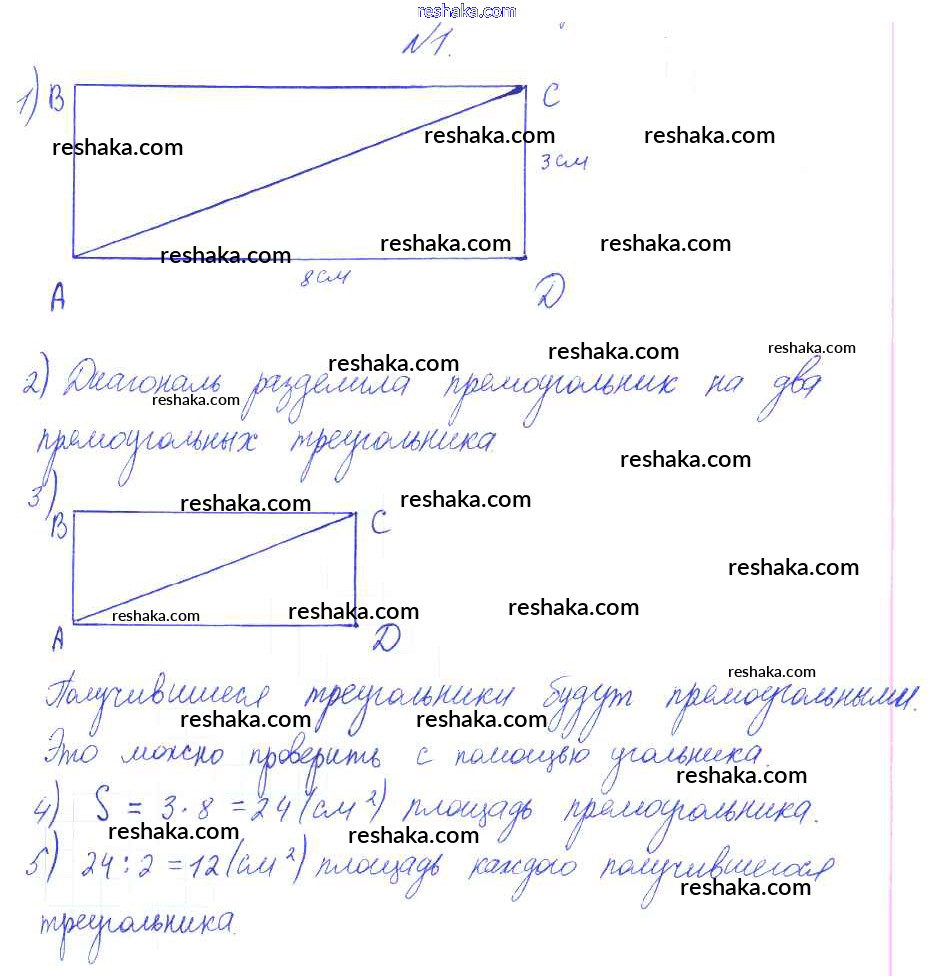 reshaka.com
№1.
1) B C
reshaka.com reshaka.com reshaka.com
3 см
reshaka.com reshaka.com reshaka.com
8 см
A D
reshaka.com reshaka.com reshaka.com
2) Диагональ разделила прямоугольник на два
reshaka.com
прямоугольных треугольника.
reshaka.com
3)
reshaka.com reshaka.com
B C
reshaka.com
reshaka.com reshaka.com reshaka.com
A D
reshaka.com
Получившиеся треугольники будут прямоугольными.
reshaka.com reshaka.com
Это можно проверить с помощью угольника.
reshaka.com
4) S = 3 · 8 = 24 (см²) площадь прямоугольника.
reshaka.com reshaka.com
5) 24 : 2 = 12 (см²) площадь каждого получившегося
reshaka.com
треугольника.